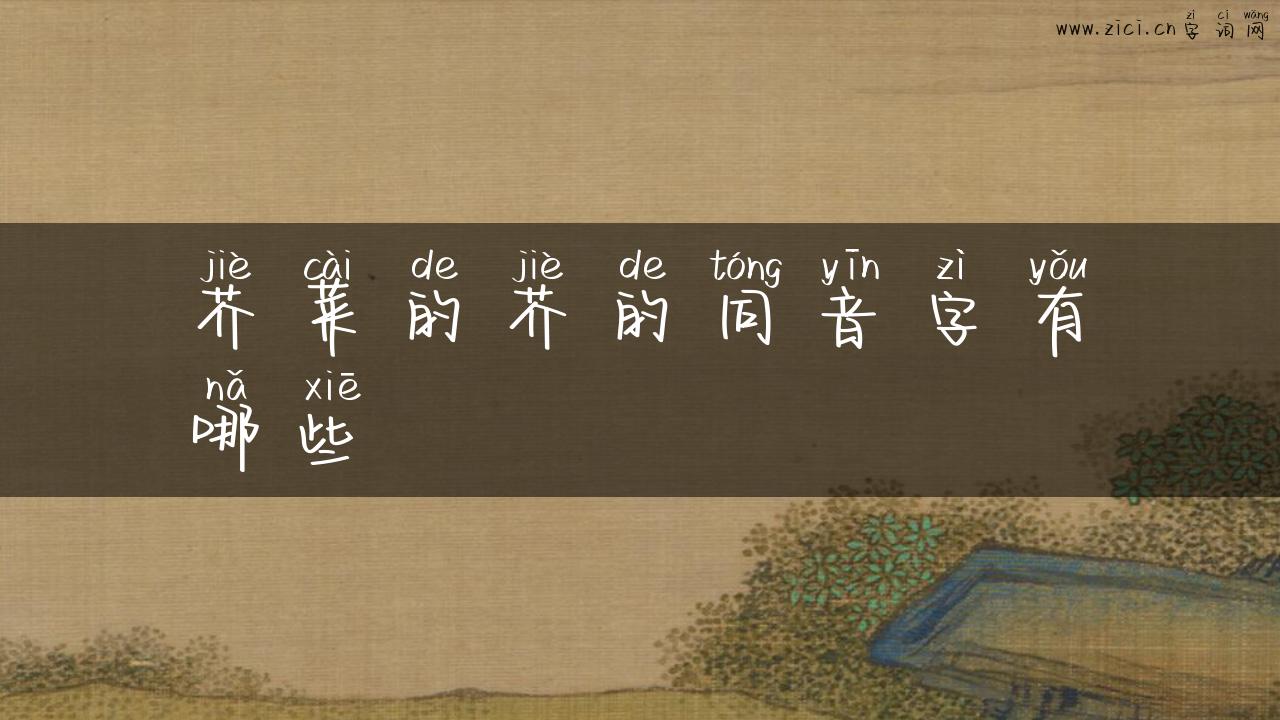 www.zici.cn 字词网
zì cí wǎng
jiè cài de jiè de tóng yīn zì yǒu
芥菜的芥的同音字有
nǎ xiē
哪些